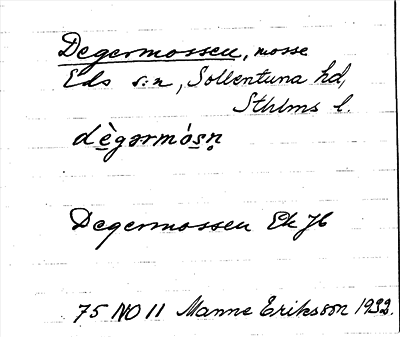 Degermossen, mosse
Eds s:n, Sollentuna hd,
Sthlms l.
dègərmósn̥
Degermossen Ek Jb
75 NO 11 Manne Eriksson 1932.